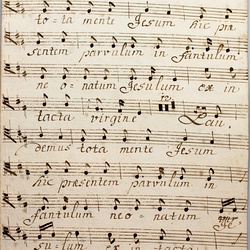 to-ta mente Jesum hic præ
sentem parvulum in fantulum
ne o-natum Jesulum ex in
tacta virgine Lau-
demus tota mente Jesum
hic præsentem parvulum in
fantulum neo-natum Je
su-lum ex in-tacta